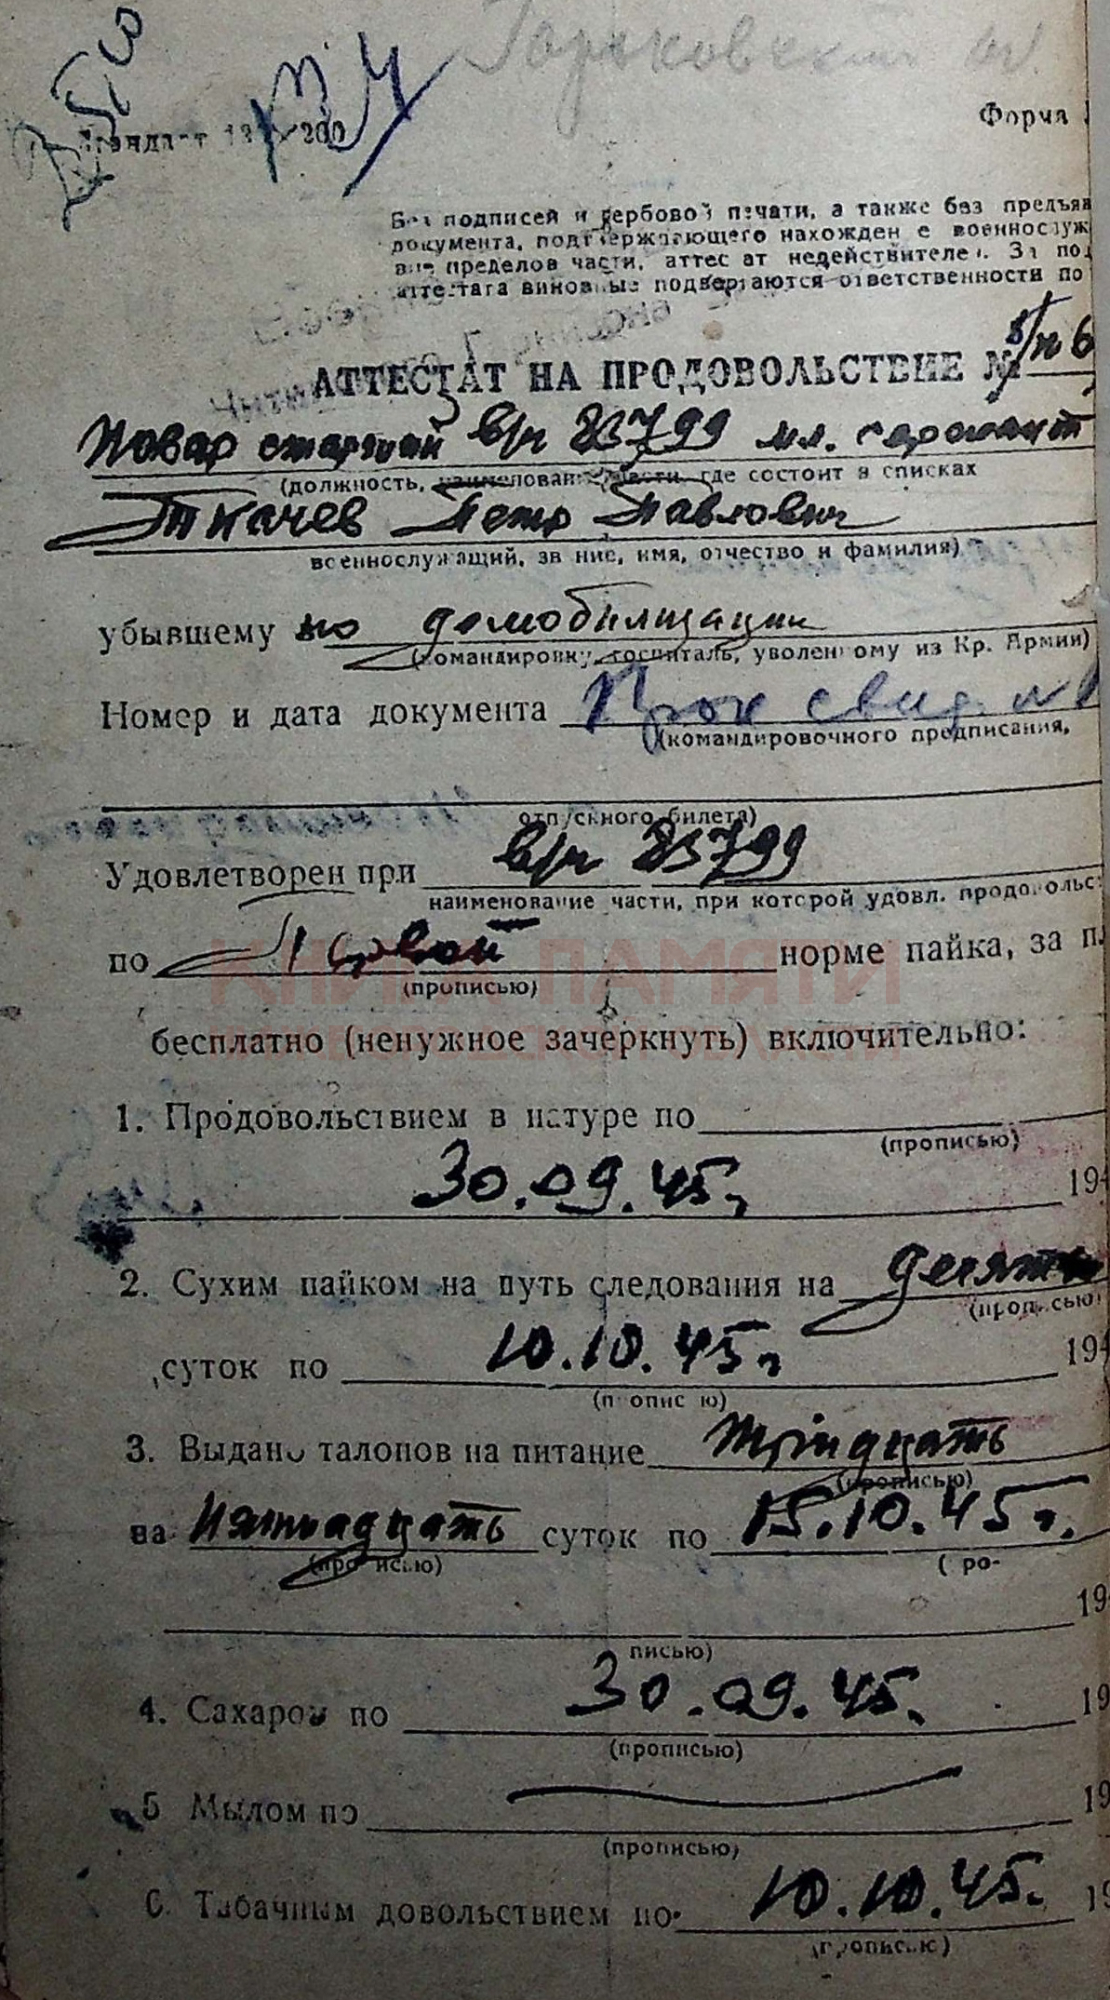 Горьковский
Форма
Без подписей и гербовой печати, а также без предъяв
документа, подтверждающего нахождение военнослуж
вне пределов части, аттестат недействителен. За по
аттестата виновные подвергаются ответственности по
АТТЕСТАТ НА ПРОДОВОЛЬСТВИЕ № б/н 6
Повар старший в/ч 83799 мл. сержант
(должность, наименование части, где состоит в списках
Ткачев Петр Павлович
военнослужащий, звание, имя, отчество и фамилия)
убывшему по демобилизации
(командировку, госпиталь, уволенному из Кр. Армии)
Номер и дата документа Прох свид. №
(командировочного предписания,
отпускного билета)
Удовлетворен при в/ч 83799
наименование части, при которой удовл. продовольс
по 1 ой норме пайка, за пл
(прописью)
КНИГА ПАМЯТИ
бесплатно (ненужное зачеркнуть) включительно:
1. Продовольствием в натуре по
(прописью)
30.09.45г 194
2. Сухим пайком на путь следования на десять
(прописью)
суток по 10.10.45г 194
(прописью)
3. Выдано талонов на питание тридцать
(прописью)
на пятнадцать суток по 15.10.45г.
(прописью) ( про-
19
писью)
4. Сахаром по 30.09.45. 19
(прописью)
5 Мылом по 19
(прописью)
6. Табачным довольствием по 10.10.45. 19
(прописью)